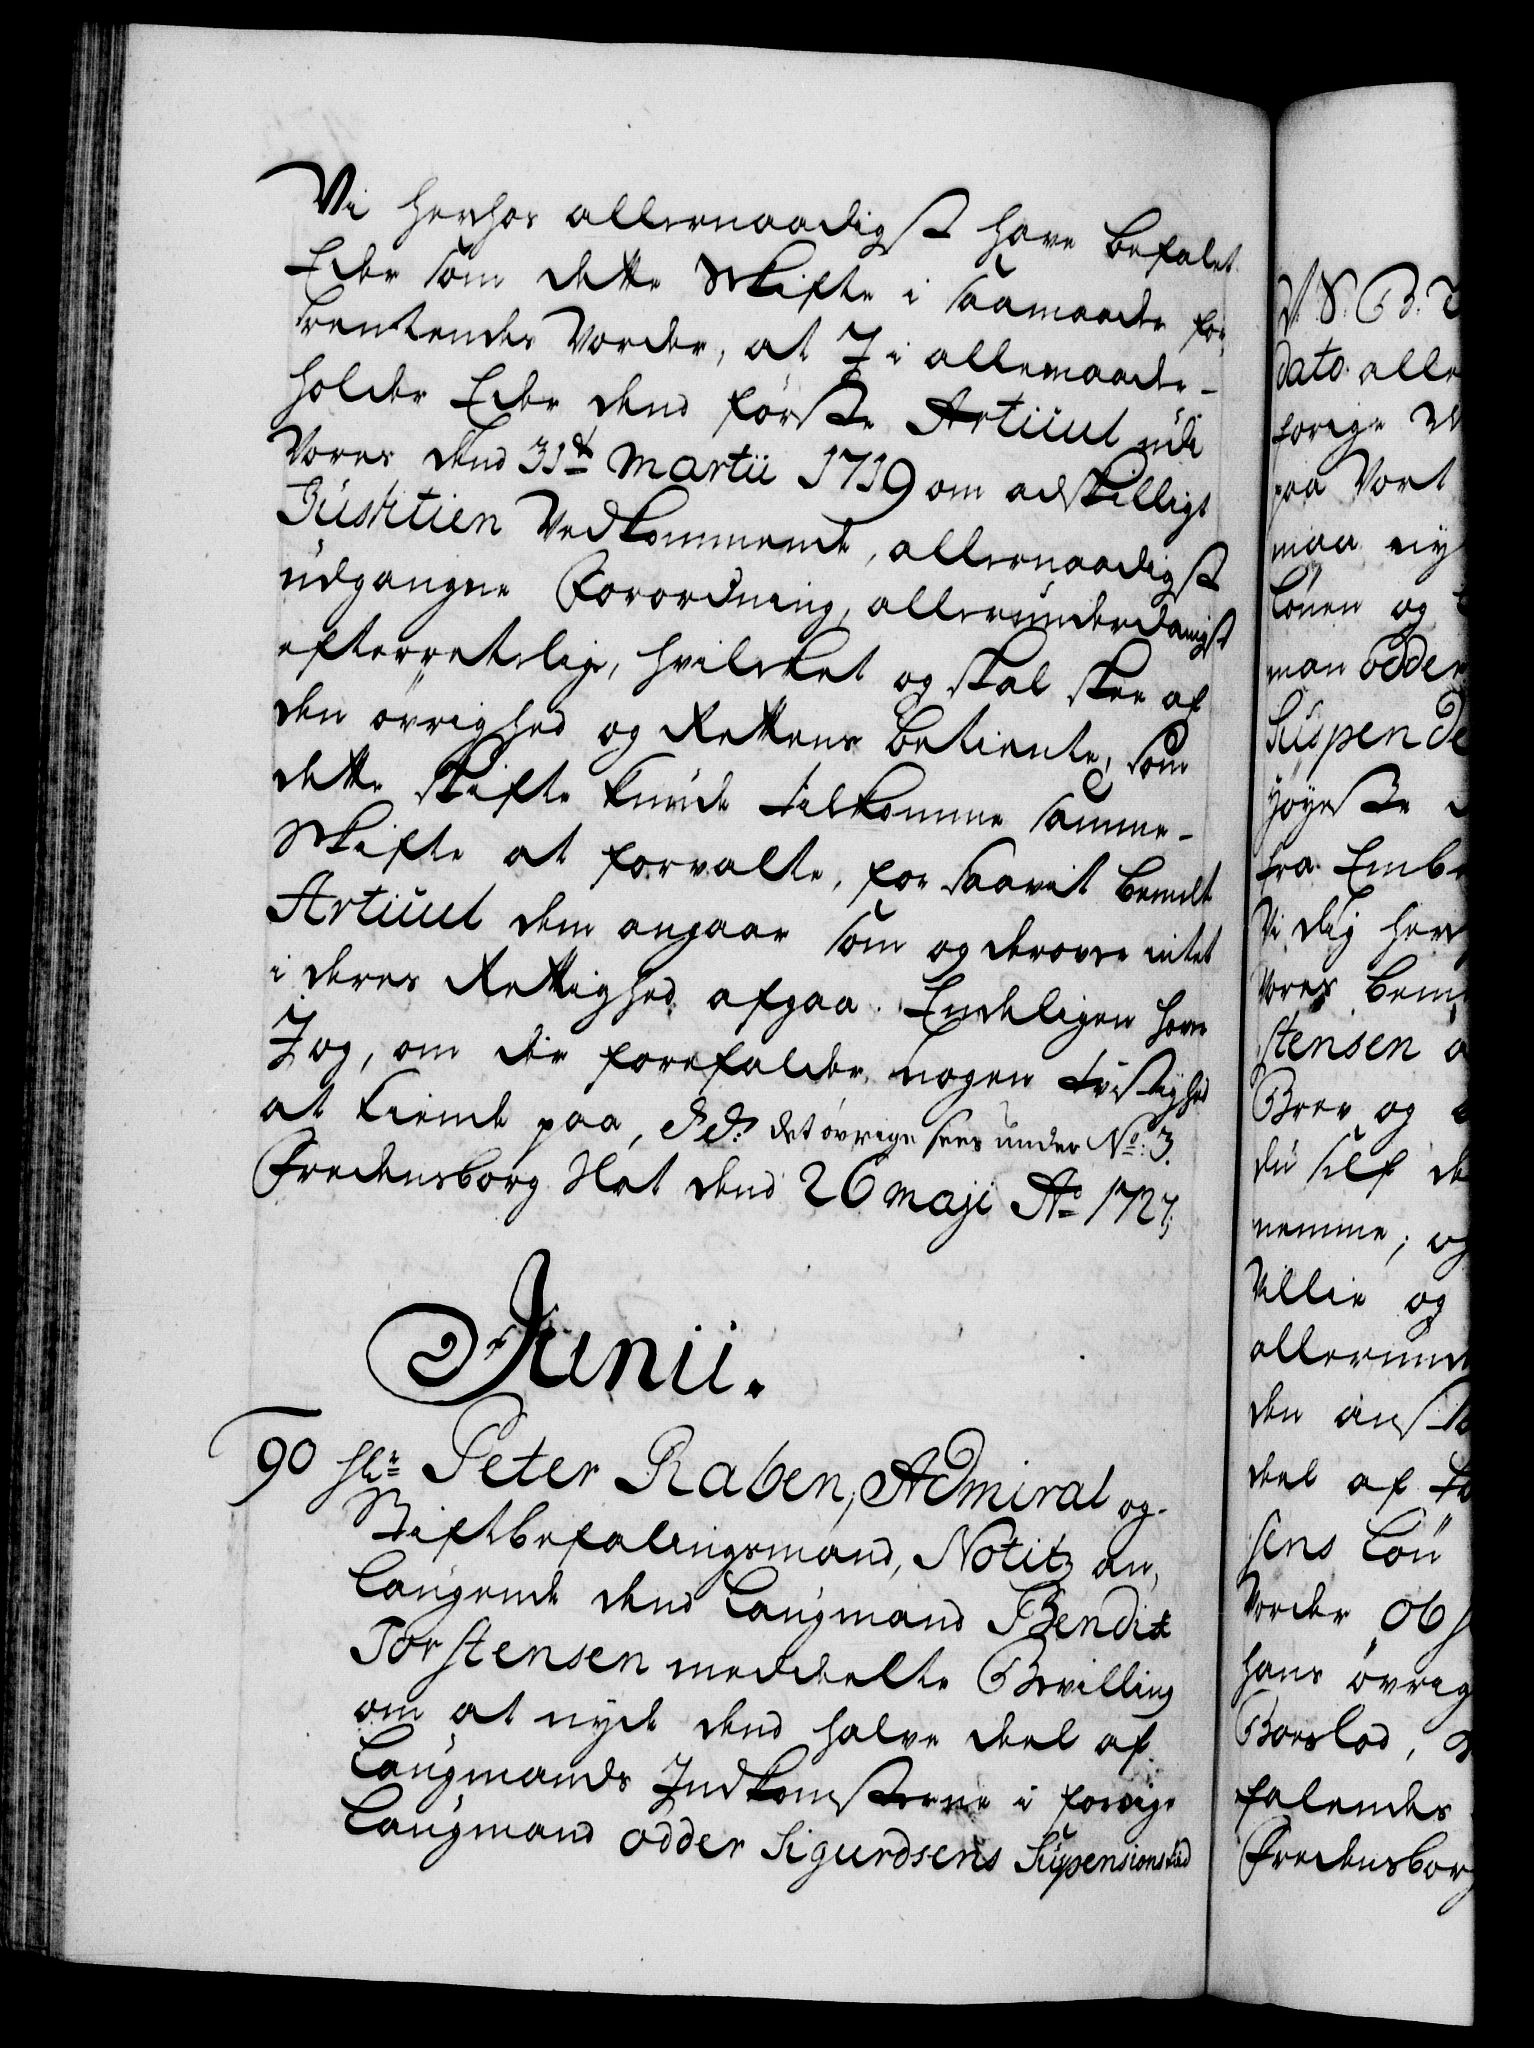 Vi herhos allernaadigst have befalet
Eder som dette Skifte i saamaade for,
trentendes vorder, at I i allemaade
holder Eder dend første Articul udi
Vores dend 31de Martii 1719 om adskilligt
Justitien Vedkommende, allernaadigst
udgangne Forordning, allerunderdanigst
efterretelig, hvilcket og skal skee af
den øvrighed og Rettens betiente, som
dette skifte kunde tilkomme samme
Skifte at forvalte, for saavit bemelte
Articul dem angaar som og derover intet
i deres Rettighed afgaa. Endeligen have
I og, om der forefalder nogen tvistighed
at kiende paa, &c: det øvrige sees under No. 3.
Fredensborg Slot dend 26 maji Ao 1727.
Junii.
90 Hr. Peter Raben, Admiral og
Stiftbefalingsmand, Notitz an,
langende dend Laugmand Bendix
Torstensen meddeelte Bevilling
om at nyde dend halve deel af
Laugmands Indkomsterne i forrige
Laugmand Odder Sigurdsens Suspensions tid
D. S. B. T
dato alle
forige
paa Vort
maa ny
Lønen og
man Odder
Suspende
Høyeste
fra Emb
Vi dig her
Vores bem
stensen
Brev og
du self de
nemme; og
Villie og
allerund
den anst
deel af
sens Løn
Vorder
hans øvrig
Boeslod,
falendes
Fredensborg